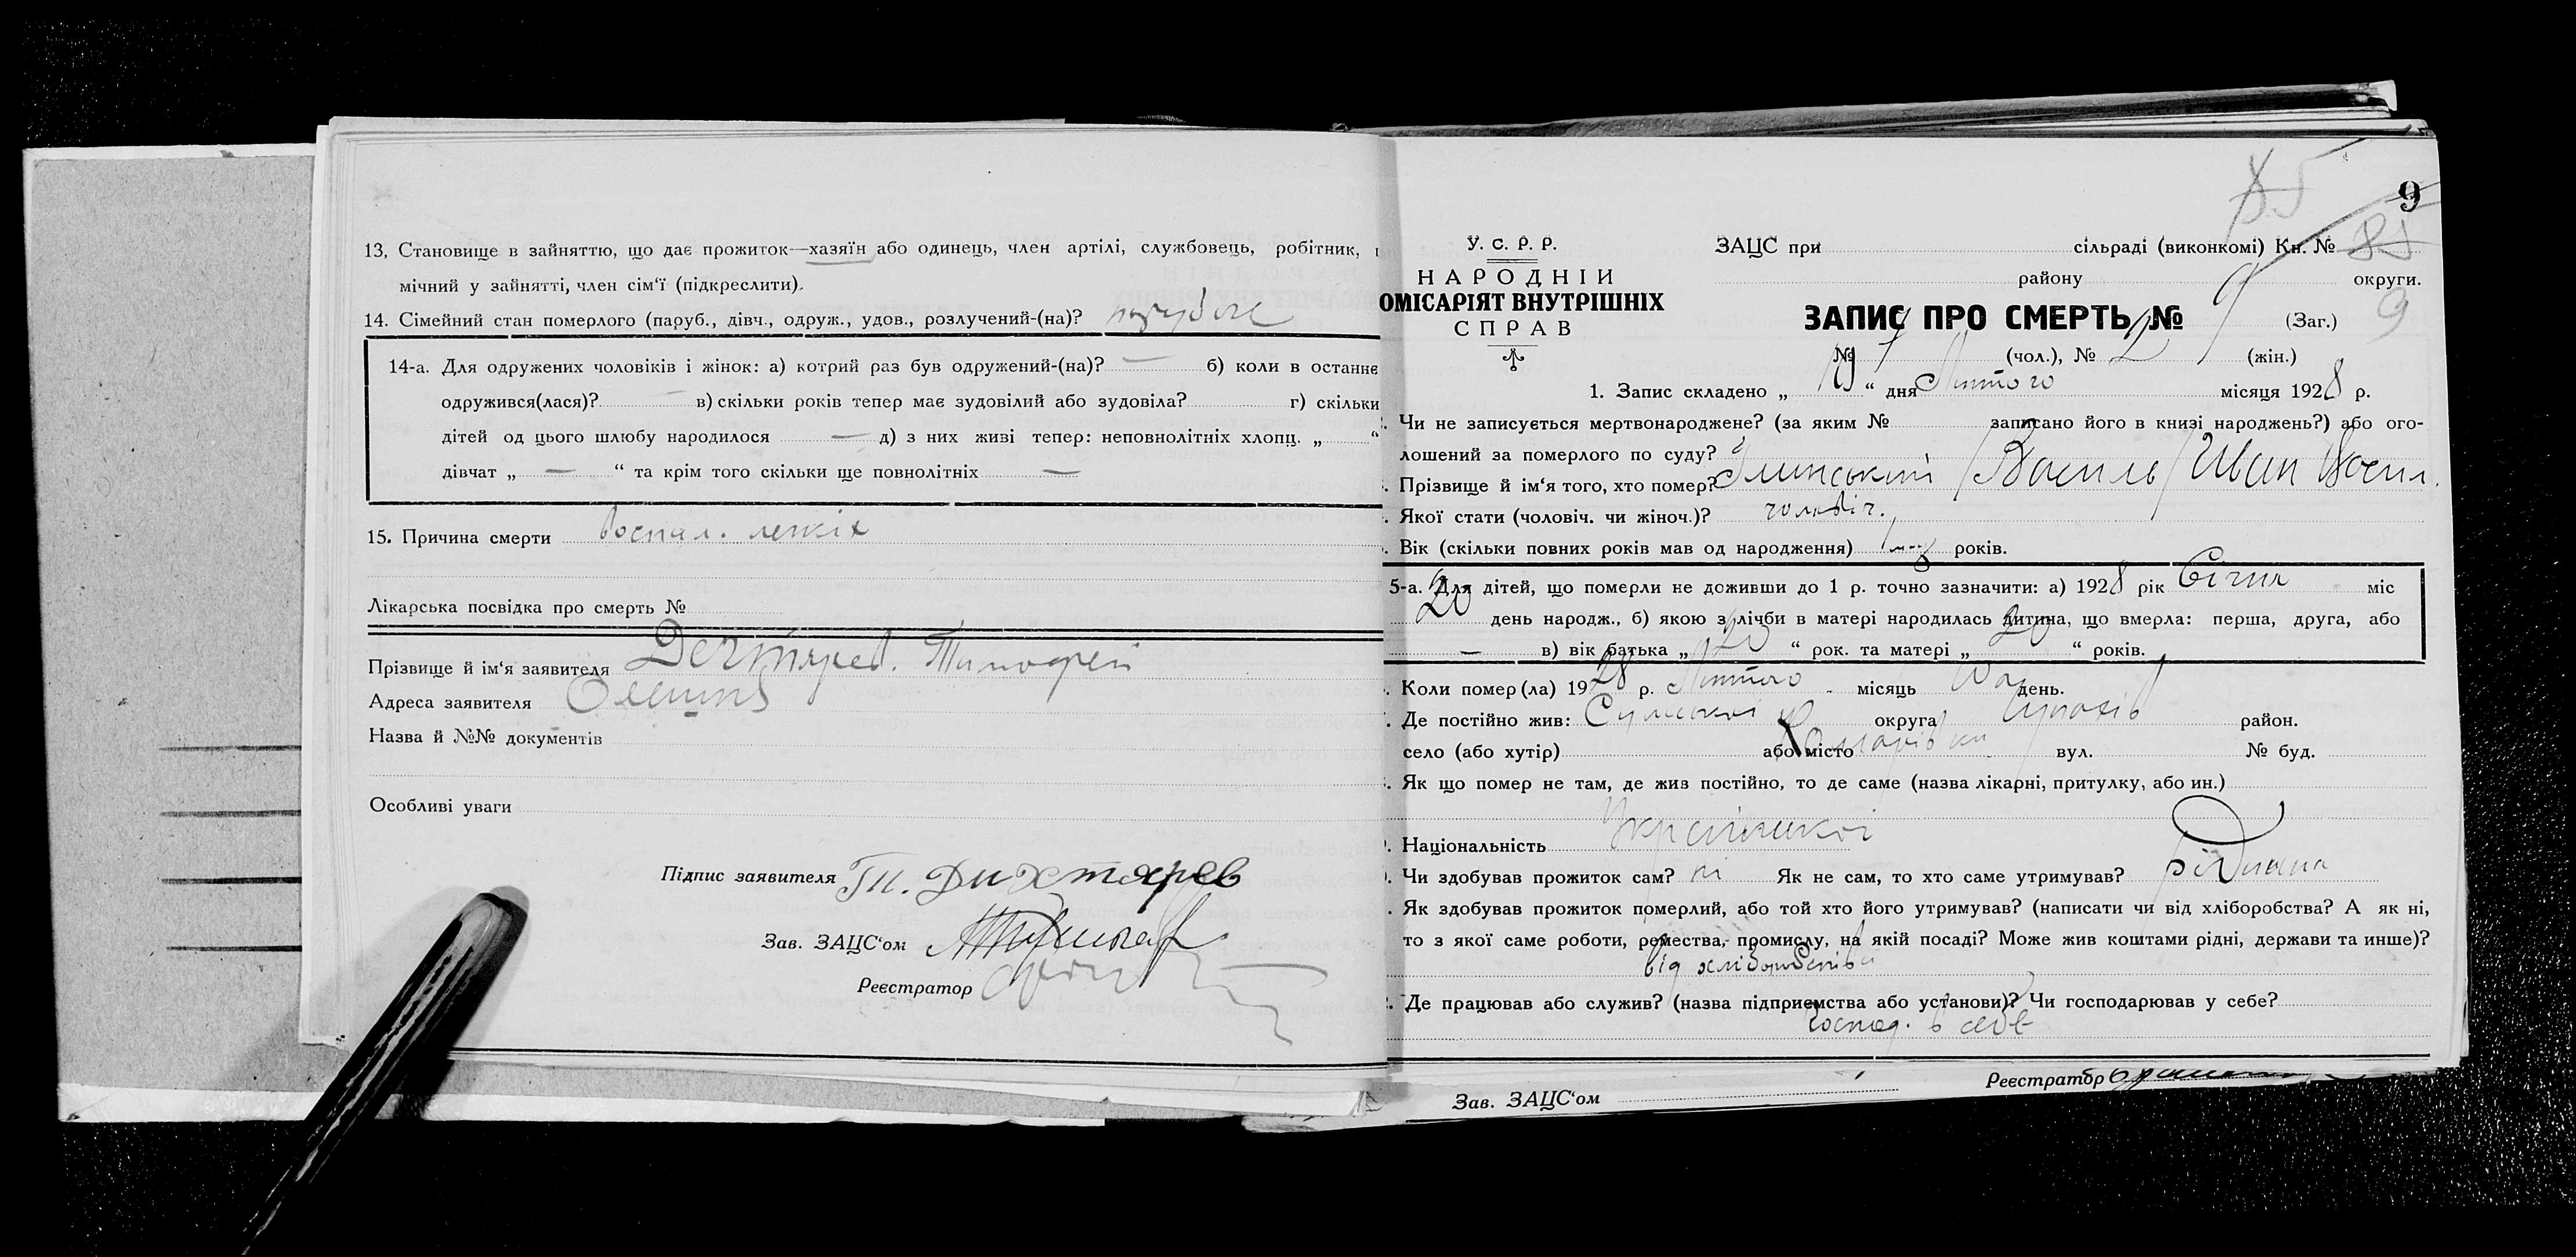 13, Становище в зайняттю, що дає прожиток—хазяїн або одинець, член артілі, службовець, робітник,
мічний у зайнятті, член сім‘ї (підкреслити).
14. Сімейний стан померлого (паруб., дівч., одруж., удов., розлучений-(на)?
14-а. Для одружених чоловіків і жінок: а) котрий раз був одружений-(на)? — б) коли в останнє
одружився(лася)? — в) скільки років тепер має зудовілий або зудовіла? г) скільки
дітей од цього шлюбу народилося — д) з них живі тепер: неповнолітніх хлопц. „ “
дівчат „ — “ та крім того скільки ще повнолітніх —
15. Причина смерти воспал. легкіх
Лікарська посвідка про смерть №
Прізвище й ім‘я заявителя Дегтярев. Тимофей
Адреса заявителя
Назва й №№ документів
Особливі уваги
Підпис заявителя Ти. Дихтярев
Зав. ЗАЦС‘ом
Реєстратор
9
У. С. Р. Р.
НАРОДНІЙ
ОМІСАРІЯТ ВНУТРІШНІХ
СПРАВ
ЗАЦС при сільраді (виконкомі) Кн. №
району округи.
ЗАПИС ПРО СМЕРТЬ № 9 (Заг.) 9
№ 7 (чол.), № 2 (жін.)
1. Запис складено „ “ дня Лютого місяця 1928 р.
Чи не записується мертвонароджене? (за яким № записано його в книзі народжень?) або ого-
лошений за померлого по суду?
Прізвище й ім‘я того, хто помер? Василь Иван Васил.
Якої стати (чоловіч. чи жіноч.)? чоловіч.
Вік (скільки повних років мав од народження) років.
5-а. Для дітей, що померли не доживши до 1 р. точно зазначити: а) 1928 рік Січня міс
20 день народж., б) якою з лічби в матері народилась дитина, що вмерла: перша, друга, або
— в) вік батька „ 20 “ рок. та матері „ 20 “ років.
Коли помер(ла) 1928 р. Лютого місяць день.
Де постійно жив: Сумської округа район.
село (або хутір) або місто вул. № буд.
Як що помер не там, де жив постійно, то де саме (назва лікарні, притулку, або ин.)
Національність Української
Чи здобував прожиток сам? ні Як не сам, то хто саме утримував? рідними
Як здобував прожиток померлий, або той хто його утримував? (написати чи від хліборобства? А як ні,
то з якої саме роботи, ремества, промислу, на якій посаді? Може жив коштами рідні, держави та инше)?
від хліборобства
Де працював або служив? (назва підприємства або установи)? Чи господарював у себе?
Господ. в себе
Зав. ЗАЦС‘ом Реєстратор